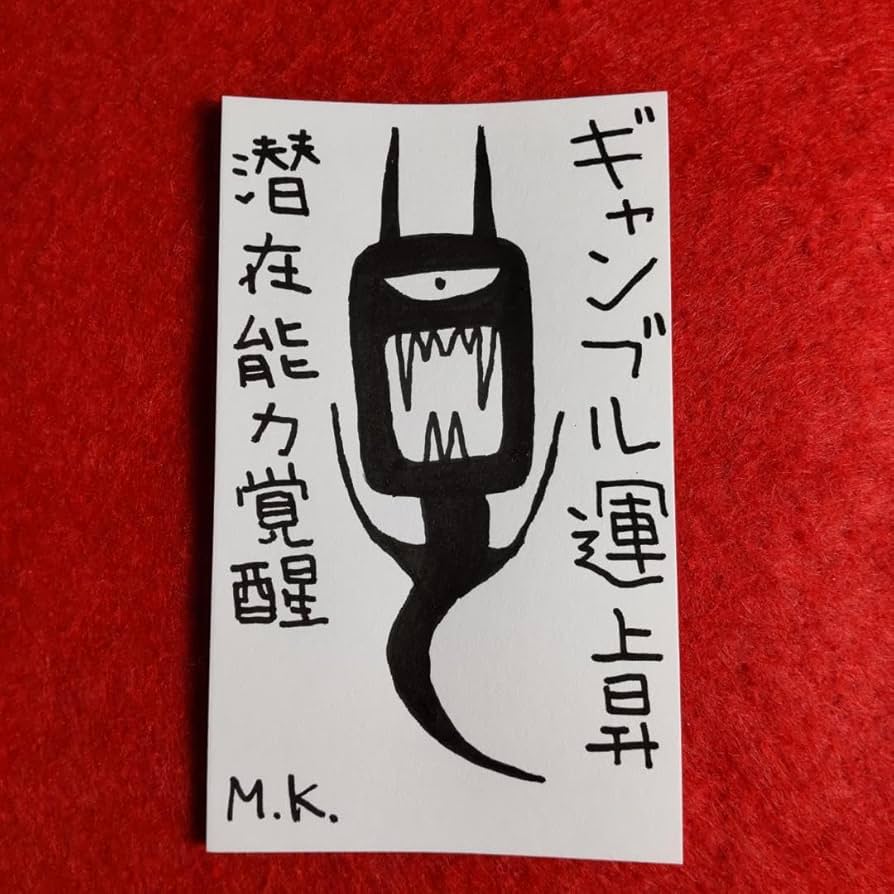 ギャンブル運上昇
潜在能力覚醒
M.K.